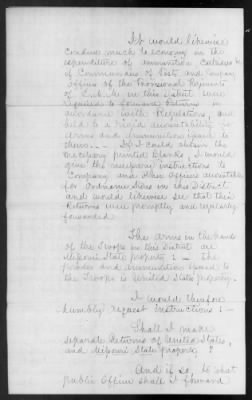 It would likewise
conduce much to economy in the
expenditure of ammunition Cartridges &c
if Commanders of Posts and Company
Officers of the Provisional Regiments
of E.M.M. in this District were
required to forward Returns in
accordance with Regulations, and
held to a rigid accountability for
Arms and Ammunition issued to
them. — If I could obtain the
necessary printed blanks, I would
give the necessary instructions to
Company and other Officers accountable
for Ordnance Stores in this District
and would likewise see that this
Returns were promptly and regularly
forwarded.
The Arms in the hands
of the Troops in this District are
Missouri State property : — The
powder and ammunition issued to
the Troops is United States property.
I would therefore
humbly request instructions : —
Shall I make
separate Returns of United States,
and Missouri State property ?
And if so, to what
public Officer shall I forward